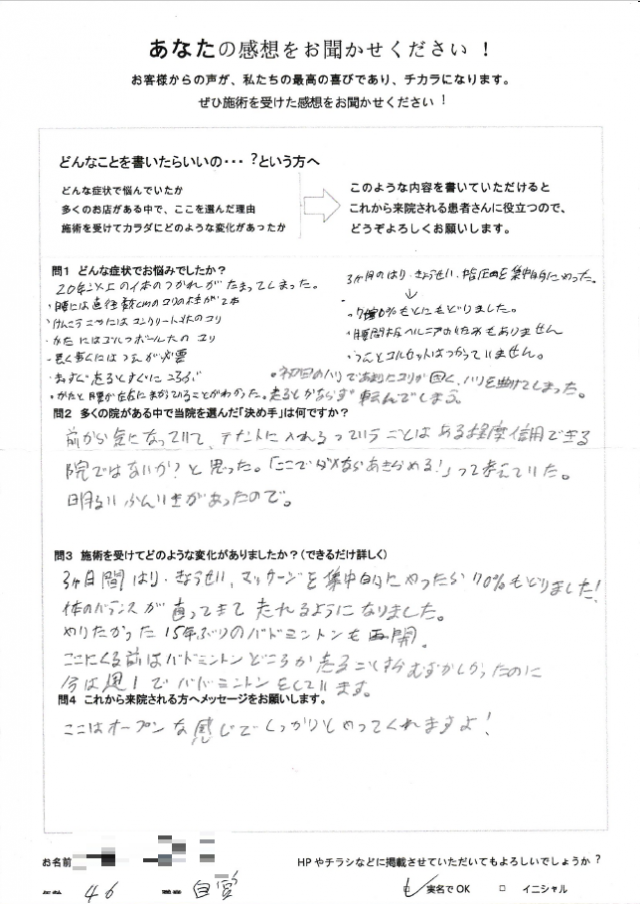 あなたの感想をお聞かせください！
お客様からの声が、私たちの最高の喜びであり、チカラになります。
ぜひ施術を受けた感想をお聞かせください！
どんなことを書いたらいいの・・・？という方へ
どんな症状で悩んでいたか
多くのお店がある中で、ここを選んだ理由
施術を受けてカラダにどのような変化があったか
このような内容を書いていただけると
これから来院される患者さんに役立つので、
どうぞよろしくお願いします。
問1 どんな症状でお悩みでしたか？
20年以上の体のつかれがたまってしまった。
・腰には直径数cmのコリの棒が2本
・けんこうこつにはコンクリート状のコリ
・かたにはゴルフボール大のコリ
・長く歩くにはつえが必要
・まっすぐ走るとすぐにころぶ
・かたと腰が左右にまがっていることがわかった。走るとかならず転んでしまう。
3ヶ月のはり・きょうせい・指圧を集中的にやった。
↓
・70%もとにもどりました。
・腰間板ヘルニアのいたみもありません
・つえとコルセットはつかっていません。
・初回のハリであたりコリが固く、ハリを曲げてしまった。
問2 多くの院がある中で当院を選んだ「決め手」は何ですか？
前から気になっていて、テナントに入れるっていうことはある程度信用できる
院ではないか？と思った。「ここでダメならあきらめる！」って考えていた。
明るいふんいきがあったので。
問3 施術を受けてどのような変化がありましたか？（できるだけ詳しく）
3ヶ月間はり・きょうせい、マッサージを集中的にやったら70%もどりました！
体のバランスが直ってきて走れるようになりました。
やりたかった15年ぶりのバドミントンも再開。
ここにくる前はバドミントンどころか走ることすらむずかしかったのに
今は週1でバドミントンをしています。
問4 これから来院される方へメッセージをお願いします。
ここはオープンな感じでしっかりとやってくれますよ！
お名前
HPやチラシなどに掲載させていただいてもよろしいでしょうか？
46 自営
実名でOK □ イニシャル